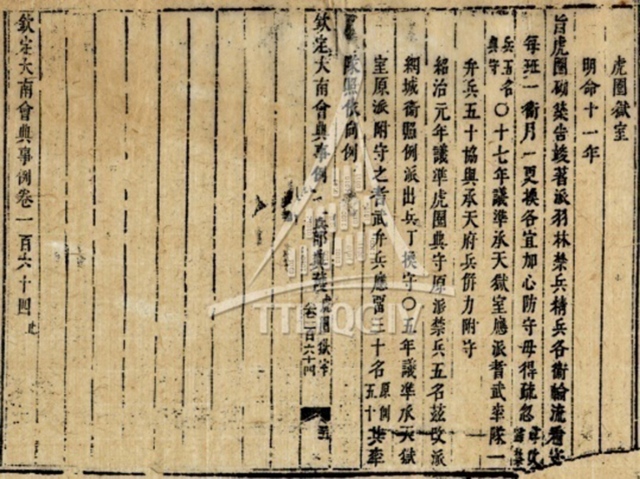 虎圈獄室
明命十一年
旨虎圈砌築告竣著派羽林禁兵精兵各衛輪流
每班一衛月一更換各宜加心防守毋得疏忽
兵五名〇十七年議準承天獄室應派者武率隊一
典守
弁兵五十協與承天府兵併力附守
紹治元年議準虎圈典守原派禁兵五名茲改派
網城衛照例派出兵丁換守〇五年議準承天獄
室原派附守之者武弁兵應留三十名原例五十其率
隊照依向例
欽定大南會典事例 兵部 虎圈獄室 卷一百六十四
欽定大南會典事例卷一百六十四
TTLTQGIV